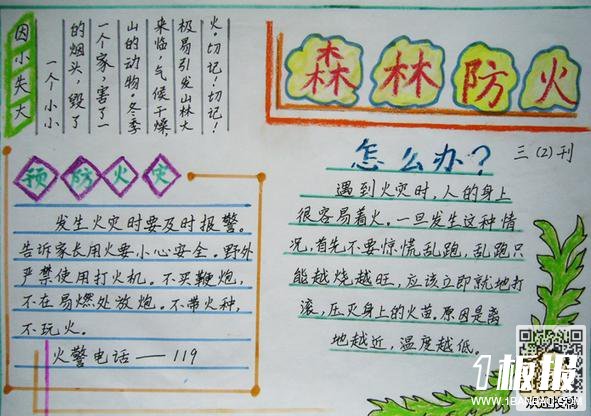 森林防火
因小失大
一个小小
的烟头，毁了
一个家，害了一
山的动物。冬季
来临，气候干燥
极易引发山林大
火。切记！切记！
预防火灾
发生火灾时要及时报警。
告诉家长用火要小心安全。野外
严禁使用打火机。不买鞭炮，
不在易燃处放炮。不带火种，
不玩火。
火警电话——119
怎么办？
三（2）刊
遇到火灾时，人的身上
很容易着火。一旦发生这种情
况，首先不要惊慌乱跑，乱跑只
能越烧越旺，应该立即就地打
滚，压灭身上的火苗。原因是离
地越近，温度越低。
1板报
WWW.1BANBAO.COM